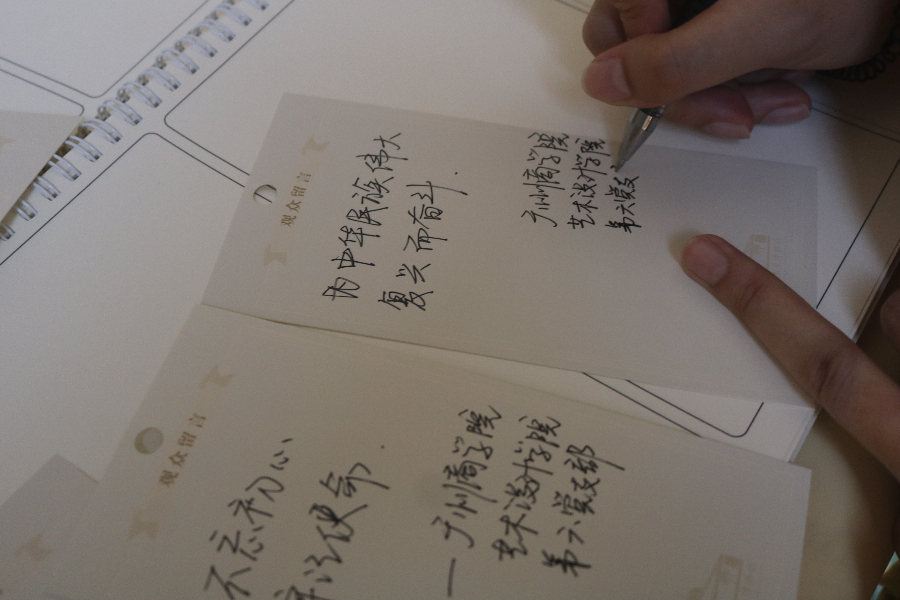 观众留言
为中华民族伟大
复兴而奋斗.
广州商学院
艺术设计学院
第六党支
观众留言
不忘初心
牢记使命.
—广州商学院
艺术设计学院
第六党支部